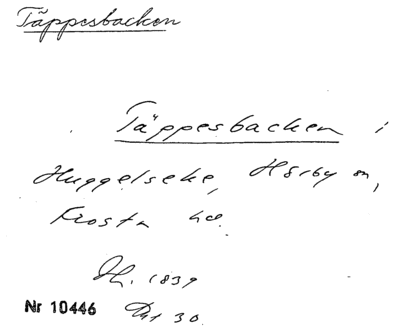 Täppesbacken
Täppesbacken i
Huggelseke, Hörby sn,
Frosta hd.
1839
Nr 10446 30.